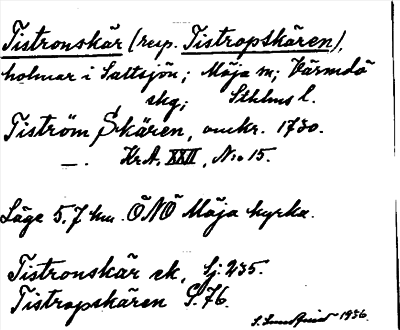 Tistronskär (resp. Tistropskären),
holmar i Saltsjön; Möja sn; Värmdö
skg; Sthlms l.
Tiström Skären, omkr. 1730.
—. Kr.A. XXII, No 15.
Läge 5.7 km. ÖNÖ Möja kyrka.
Tistronskär ek, Sj. 235.
Tistropskären G. 76.
1936.